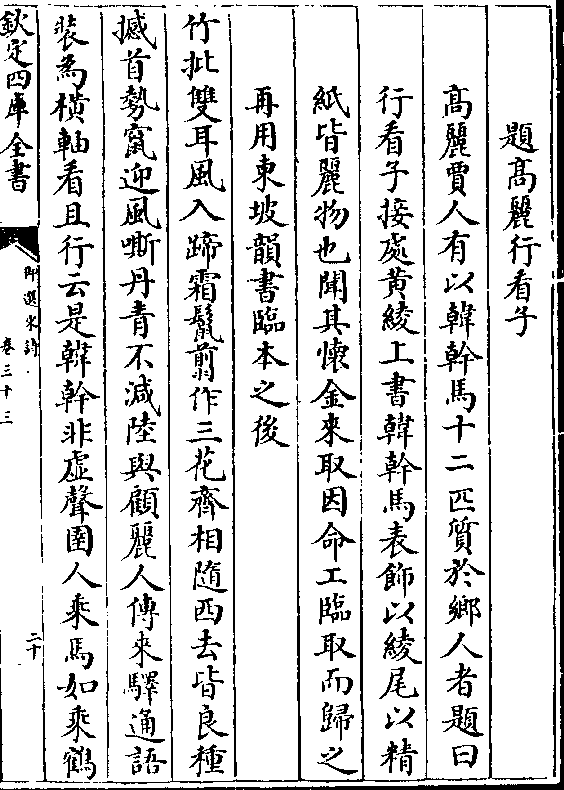 題髙麗行看子
髙麗賈人有以韓幹馬十二匹質於鄉人者題曰
行看子接處黄綾上書韓幹馬表飾以綾尾以精
紙皆麗物也聞其懷金來取因命工臨取而歸之
再用東坡韻書臨本之後
竹批雙耳風入蹄霜鬛翦作三花齊相隨西去皆良種
撼首勢窻迎風嘶丹青不減陸與顧麗人傳來驛通語
装為橫軸看且行云是韓幹非虛聲圉人乘馬如乘鶴
欽定四庫全書
御選宋詩
卷三十三
二十